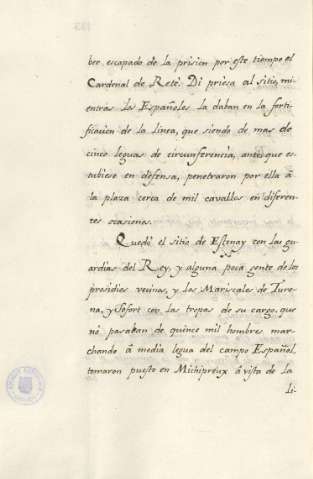 ber escapado de la prision por este tiempo el
Cardenal de Retè. Di priesa al sitio, mi-
entras los Españoles la daban en la forti-
ficacion de la linea, que siendo de mas de
cinco leguas de circunferencia, antes que es-
tubiese en defensa, penetraron por ella â
la plaza cerca de mil cavallos en diferen-
tes ocasions.
Quedó el sitio de Estenay con las gu-
ardias del Rey, y alguna poca gente de los
presidios vecinos, y los Mariscales de Ture-
na, y Sofort con las tropas de su cargo, que
nó pasaban de quince mil hombres mar-
chando â media legua del campo Español,
tomaron puesto en Michipreux â vista de la
li-